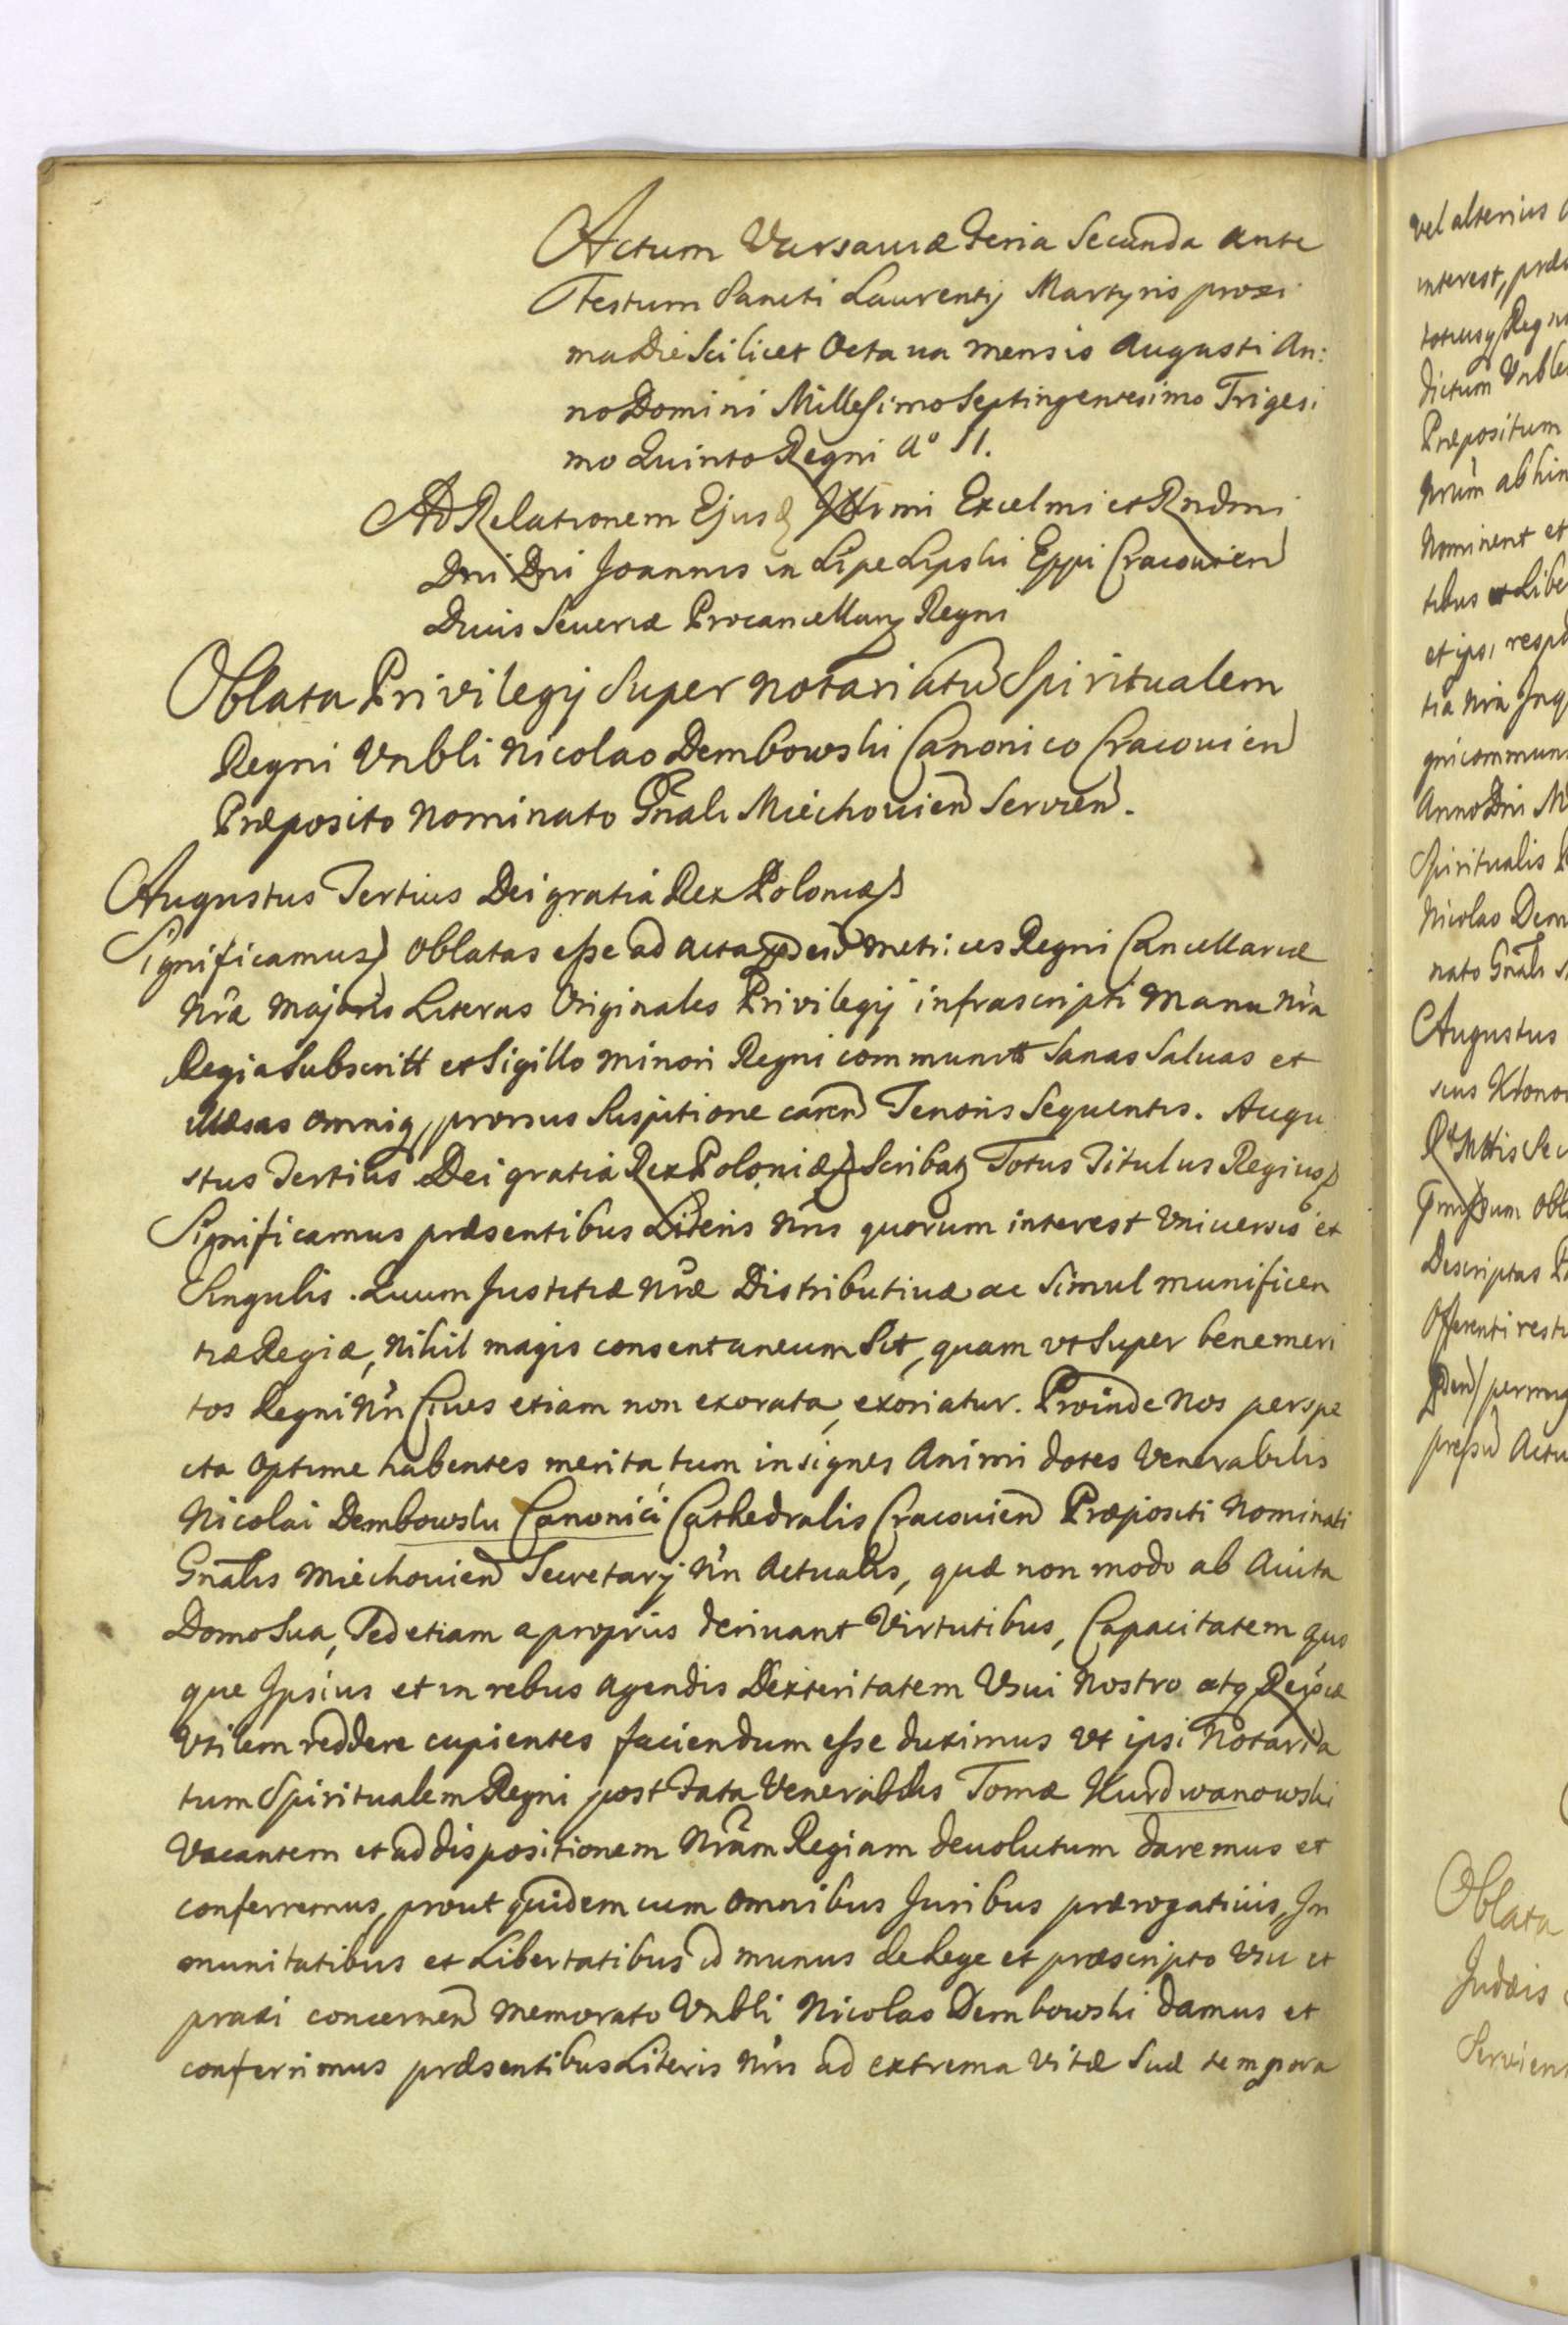 Actum Varsauiæ Feria Secunda ante
Festum Sancti Laurentij Martyris proxi
ma Die Scilicet Octaua mensis Augusti An:
no Domini Millesimo Septingentesimo Trigesi
mo Quinto Regni A° II.
Ad Relationem Ejusd Illrmi Excelmi et Rndmi
Dni Dni Joannis in Lipe Lipski Eppi Cracouien
Ducis Seueriæ Procancellarij Regni
Oblata Privilegij Super Notariatu Spiritualem
Regni Vnbli Nicolao Dembowski Canonico Cracouien
Præposito Nominato Gnali Miechouien Servien.
Augustus Tertius Dei gratia Rex Poloniæ
Significamus oblatas esse ad acta metrices Regni Cancellariæ
Nræ Majoris Literas Originales Privilegij infrascripti Manu Nra
Regia Subscritt et Sigillo minori Regni communitt Sanas Saluas et
illæsas omniq, prorsus Suspitione caren Tenoris Sequentis. Augu
stus Tertius Dei gratia Rex Poloniæ Scribat Totus Titulus Regius
Significamus præsentibus Literis Nris quorum interest Vniuersis et
Singulis. Quum Justitiæ Nræ Distributiuæ ac Simul munificen
tiæ Regiæ, Nihil magis consentaneum Sit, quam vt Super benemeri
tos Regni Nri Ciues etiam non exorata, exoriatur. Proinde Nos perspe
cta optime habentes merita, tum insignes Animi dotes Venerabilis
Nicolai Dembowski Canonici Cathedralis Cracouien Præpositi Nominati
Gnalis Miechouien Secretarij Nri Actualis, quæ non modo ab Auita
Domo Sua, Sed etiam a proprijs deriuant Virtutibus, Capacitatem quo
que Ipsius et in rebus agendis Dexteritatem Vsui Nostro atq Reipcæ
Vtilem reddere cupientes faciendum esse duximus vt ipsi Notaria
tum Spiritualem Regni post Fata Venerabilis Tomæ Kurdwanowski
Vacantem et ad dispositionem Nram Regiam deuolutum daremus et
conferremus, prout quidem cum omnibus Juribus prærogatiuis, Im
munitatibus et Libertatibus id munus de Lege et præscripto Vsu et
praxi concernen memorato Vnbli Nicolao Dembowski damus et
conferrimus præsentibus Literis Nris ad extrema Vitæ Suæ tempora
vel alterius
interest,
Dictum
Præpositum
Nrum abhin
Nominent et
et ipsi
tia Nra
Anno Dni
Spiritualis
Nicolao Dem
nato Gnali
Augustus
Descriptas
Offerenti
Oblata
Judæis
Servien